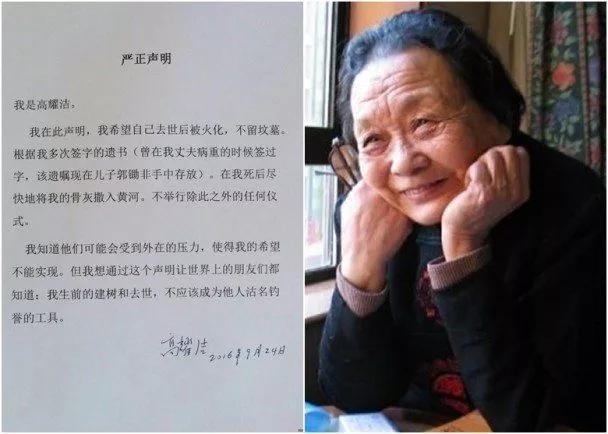 严正声明
我是高耀洁。
我在此声明，我希望自己去世后被火化，不留坟墓。
根据我多次签字的遗书（曾在我丈夫病重的时候签过
字，该遗嘱现在儿子郭锄非手中存放）。在我死后尽
快地将我的骨灰撒入黄河。不举行除此之外的任何仪
式。
我知道他们可能会受到外在的压力，使得我的希望
不能实现。但我想通过这个声明让世界上的朋友们都
知道：我生前的建树和去世，不应该成为他人沽名钓
誉的工具。
高耀洁 2016年9月24日